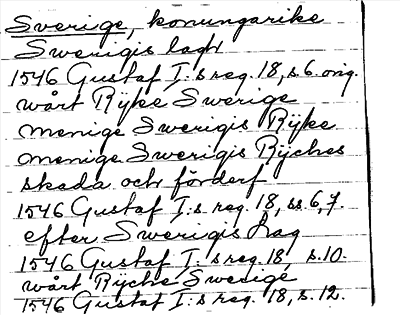 Sverige, konungarike
Swerigis lagh
1546 Gustaf I:s reg. 18, s. 6. orig.
wårt Rijke Swerige
menige Swerigis Rijke
menige Swerigis Rijches
skada och förderf
1546 Gustaf I:s reg. 18, ss. 6, 7.
efter Swerigis Lag
1546 Gustaf I:s reg. 18, s. 10.
wårt Rijche Swerige
1546 Gustaf I:s reg. 18, s. 12.